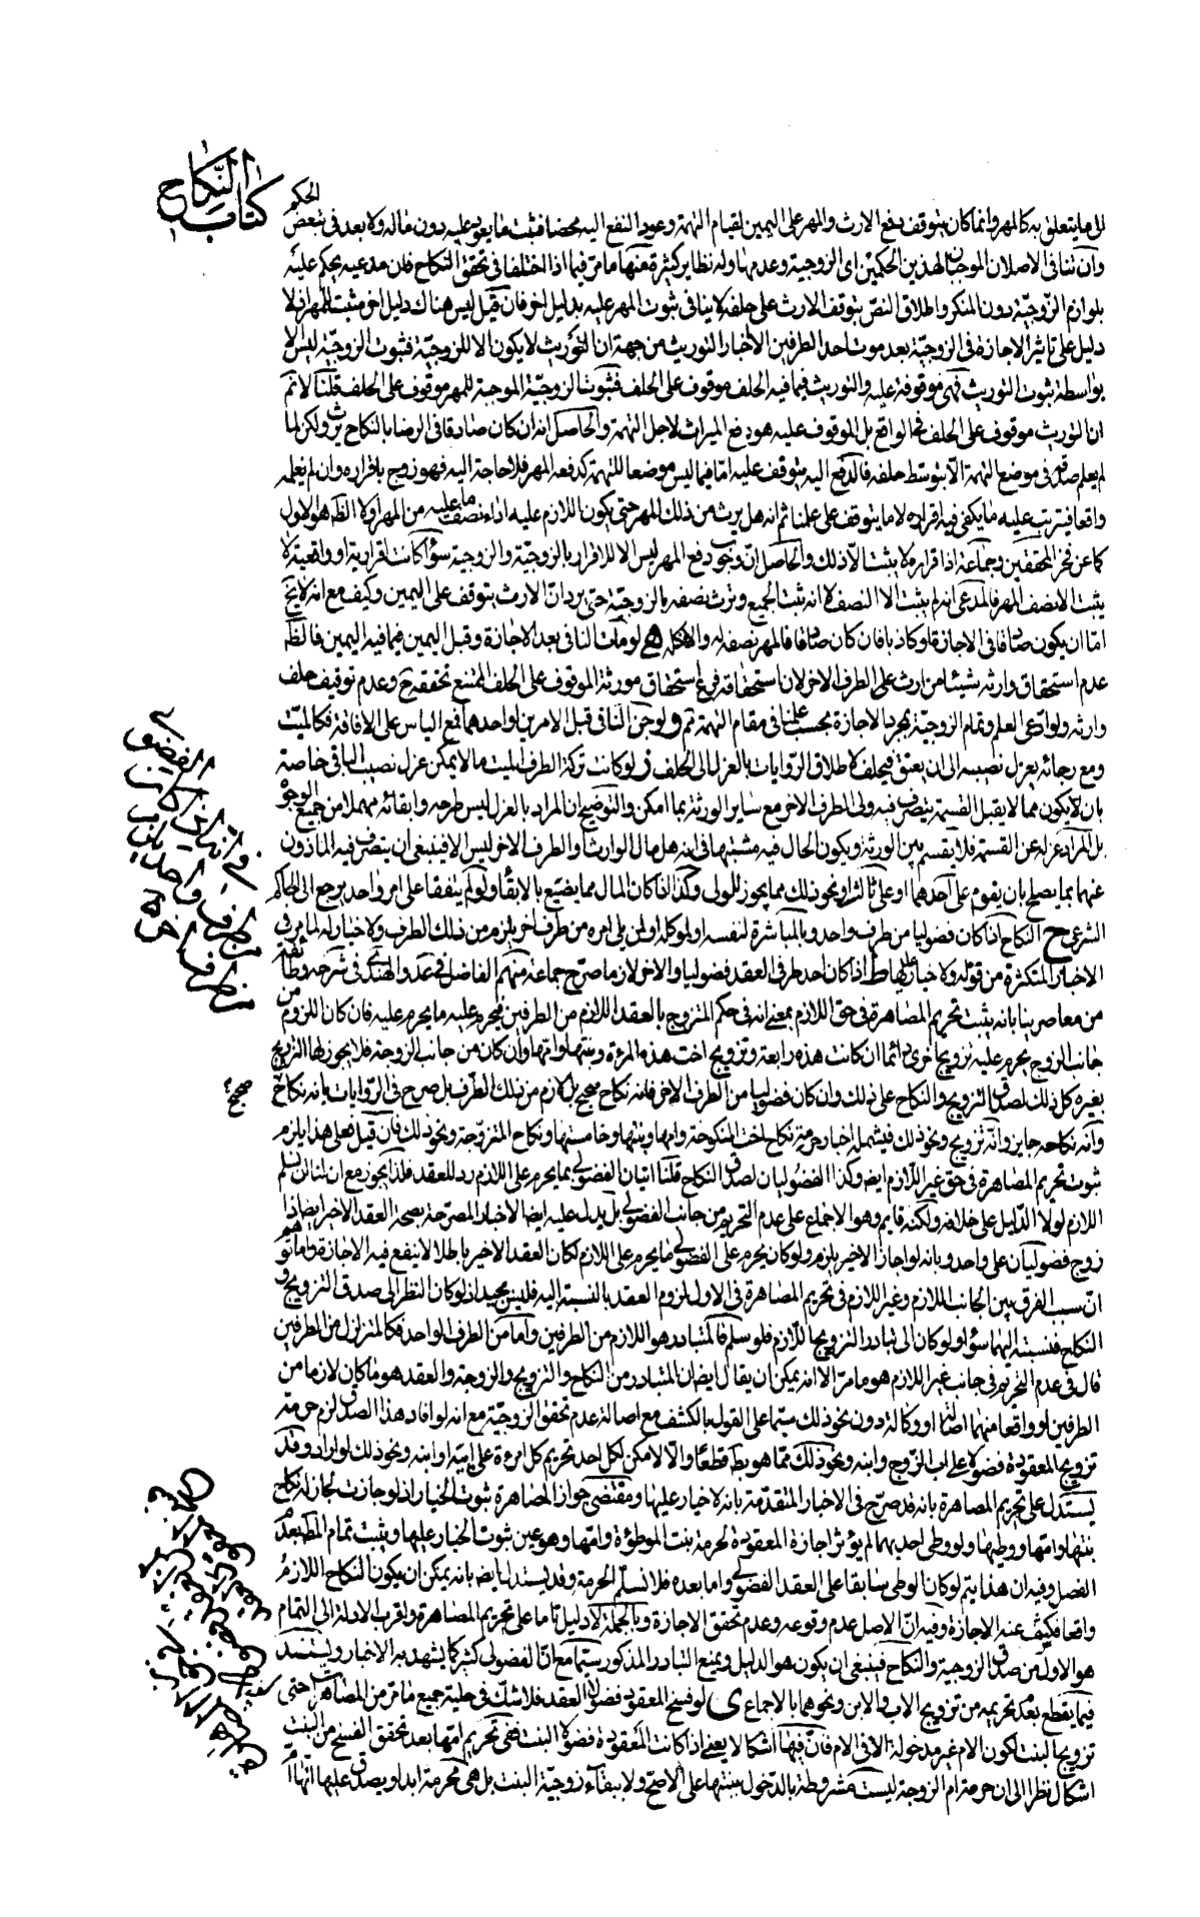 كتاب النكاح
الى ما يتعلق به كالمهر وانما كان يتوقف دفع الارث والمهر على اليمين لقيام التهمة وعود النفع اليه محضا فثبت ما يعود عليه دون ماله ولا بعد في تبعض الحكم
وان تنافى الاصلان الموجبان لهذين الحكمين اى الزوجية وعدمها وله نظاير كثيرة منها ما مر فيما اذا اختلفا في تحقق النكاح فان مدعيه يحكم عليه
بلوازم الزوجية دون المنكر واطلاق النص بتوقف الارث على حلفه لا ينافى ثبوت المهر عليه بدليل اخر فان قيل ليس هناك دليل اخر مثبت للمهر اذ لا
دليل على تاثير الاجازة في الزوجية بعد موت احد الطرفين الا اخبار التوريث من جهة ان التوريث لا يكون الا للزوجية فثبوت الزوجية ليس الا
بواسطة ثبوت التوريث فهى موقوفة عليه والتوريث فيما فيه الحلف موقوف على الحلف فثبوت الزوجية الموجبة للمهر موقوف على الحلف قلنا لا نم
ان التوريث موقوف على الحلف في الواقع بل الموقوف عليه هو دفع الميراث لاجل التهمة والحاصل انه ان كان صادقا في الرضا بالنكاح يرث ولكن لما
لم يعلم صدقه في موضع التهمة الا بتوسط حلفه فالدفع اليه يتوقف عليه اما فيما ليس موضعا للتهمة كدفعه المهر فلا حاجة اليه فهو زوج باقراره وان لم نعلمه
واقعا فيترتب عليه ما يكفى فيه اقراره لا ما يتوقف على علمنا ثم انه هل يرث من ذلك المهر حتى يكون اللازم عليه اداء نصف ما عليه من المهر او لا الظ هو الاول
كما عن فخر المحققين وجماعة اذ اقراره لا يثبت الا ذلك والحاصل ان وجوب دفع المهر ليس الا للاقرار بالزوجية والزوجية سواء كانت اقرارية او واقعية لا
يثبت الا نصف المهر فالمدعى انه لم يثبت الا النصف لا انه ثبت الجميع وترث نصفه بالزوجية حتى يرد ان الارث يتوقف على اليمين وكيف مع انه لا يخ
اما ان يكون صادقا في الاجازة او كاذبا فان كان صادقا فالمهر نصفه له والا فكله لو مات الثانى بعد الاجازة وقبل اليمين فيما فيه اليمين فالظ
عدم استحقاق وارثه شيئا من ارث على الطرف الاخر لان استحقاقه فرع استحقاق مورثه الموقوف على الحلف الممتنع تحققه ح وعدم توقيف حلف
وارثه ولو ادعى العلم وتمام الزوجية بمجرد الاجازة بحسب علمنا في مقام التهمة ثم ولو جن الثانى قبل الامرين او احدهما فمع الياس على الافاقة فكالميت
ومع رجائه يعزل نصيبه الى ان يعتق فيحلف لاطلاق الروايات بالعزل الى الحلف ولو كانت تركة الطرف الميت ما لا يمكن عزل نصيب الباقى خاصة
بان لا يكون مما لا يقبل القسمة يتصرف فيه ولى الطرف الاخر مع ساير الورثة بما امكن والتوضيح ان المراد بالعزل ليس طرحه وابقائه مهملا من جميع الوجوه
بل المراد عزله عن القسمة فلا يقسم بين الورثة ويكون الحال فيه مشتبها في انه هل مال الوارث او الطرف الاخر ليس الا فينبغى ان يتصرف فيه الماذون
عنهما بما يصلح بان يقوم على احدهما او على ثالث او نحو ذلك مما يجوز للولى وكذا ان كان المال مما يضيع بالابقاء ولو لم يتفقا على امر واحد يرجع الى الحاكم
الشرعى ح النكاح اذا كان فضوليا من طرف واحد وبالمباشرة لنفسه او لموكله او لمن يلى امره من طرف اخر يلزم من ذلك الطرف ولا خيار له لما مر في
الاخبار المتكثرة من قوله ولا خيار عليها ط اذا كان احد طرفى العقد فضوليا والاخر لازما صرح جماعة منهم الفاضل في عد والهندى في شرحه وطائفة
من معاصرينا بانه يثبت تحريم المصاهرة في حق اللازم بمعنى انه في حكم المتزوج بالعقد اللازم من الطرفين فيحرم عليه ما يحرم عليه فان كان اللزوم من
جانب الزوج يحرم عليه تزويج اخرى دائما ان كانت هذه رابعة وتزويج اخت هذه المرءة وبنتها وامها وان كان من جانب الزوجة فلا يجوز لها التزويج
بغيره كل ذلك لصدق التزويج والنكاح على ذلك وان كان فضوليا من الطرف الاخر فانه نكاح صحيح بل لازم من ذلك الطرف بل صرح في الروايات بانه نكاح صحيح
وانه نكاحه جايز وانه تزويج ونحو ذلك فيشمله اخبار حرمة نكاح اخت المنكوحة وامها وبنتها وخامستها ونكاح المتزوجة ونحو ذلك فان قيل فعلى هذا يلزم
ثبوت تحريم المصاهرة في حق غير اللازم ايضا وكذا الفضوليان لصدق النكاح قلنا اتيان الفضولى بما يحرم على اللازم رد للعقد فلذا يجوز مع ان لنا ان نسلم
اللازم لولا الدليل على خلافه ولكنه قايم وهو الاجماع على عدم التحريم من جانب الفضولى بل يدل عليه ايضا الاخبار المصرحة بصحة العقد الاخر ايضا اذا
زوج فضوليان على واحد وبانه لو اجاز الاخير يلزم ولو كان يحرم على الفضولى ما يحرم على اللازم لكان العقد الاخير باطلا لا ينفع فيه الاجازة واما توهم
ان سبب الفرق بين الجانب اللازم وغير اللازم في تحريم المصاهرة في الاول لزوم العقد بالنسبة اليه فليس بجيد اذ لو كان النظر الى صدق التزويج و
النكاح فنسبته اليهما سواء ولو كان الى تبادر التزويج اللازم فلو سلم فالمتبادر هو اللازم من الطرفين واما من الطرف الواحد فكالمتزلزل من الطرفين
قال في عدم التحريم في جانب غير اللازم هو ما مر الا انه يمكن ان يقال ايضا ان المتبادر من النكاح والتزويج والزوجة والعقد هو ما كان لازما من
الطرفين او واقعا منهما اصالة او وكالة دون نحو ذلك سيما على القول بالكشف مع اصالة عدم تحقق الزوجية مع انه لو افاد هذا الصدق لزم حرمة
تزويج المعقودة فضولا على اب الزوج وابنه ونحو ذلك مما هو بط قطعا والا لامكن لكل احد تحريم كل امرءة على ابيه او ابنه ونحو ذلك لو اراد وقد
يستدل على تحريم المصاهرة بانه قد صرح في الاخبار المتقدمة بانه لا خيار عليها ومقتضى جواز المصاهرة ثبوت الخيار اذ لو جازت لجاز له نكاح
بنتها وامها ووطيها ولو وطى احديهما لم يؤثر اجازة المعقودة لحرمة بنت الموطوئة وامها وهو عين ثبوت الخيار عليها ويثبت تمام المط بعدم
الفصل وفيه ان هذا يتم لو كان الوطى سابقا على العقد الفضولى واما بعده فلا نسلم الحرمة وقد يستدل ايضا بانه يمكن ان يكون النكاح اللازم
واقعا فكيف عنه الاجازة وفيه ان الاصل عدم وقوعه وعدم تحقق الاجازة وبالجملة لا دليل تاما على تحريم المصاهرة واقرب الادلة الى التمام
هو الاول من صدق الزوجية والنكاح فينبغى ان يكون هو الدليل ويمنع التبادر المذكور سيما مع ان الفضولى كثير كما يشهد به الاخبار ويستند
فيما يقطع بعد تحريمه من تزويج الاب والابن ونحوهما بالاجماع ى لو فسخ المعقودة فضولا العقد فلا شك في حلية جميع ما مر من المصاهرات حتى
تزويج البنت لكون الام غير مدخولة الا في الام فان فيها اشكالا يعنى اذا كانت المعقودة فضولا البنت ففى تحريم امها بعد تحقق الفسخ من البنت
اشكال نظرا الى ان حرمة ام الزوجة ليست مشروطة بالدخول ببنتها على الاصح ولا ببقاء زوجية البنت بل هى محرمة ابدا ويصدق عليها انها ام